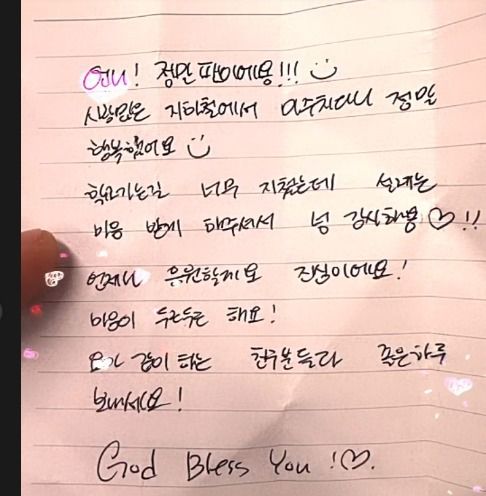 언니! 정말 팬이에용!!!
사람많은 지하철에서 마주치다니 정말
행복했어요
학교가는길 너무 지쳤는데 설레는
마음 받게 해주셔서 넘 감사해용♡!!
언제나 응원할게요 진심이에요!
마음이 두근두근 해요!
요가 같이 하는 친구분들과 좋은하루
보내세요!
God Bless You !♡.